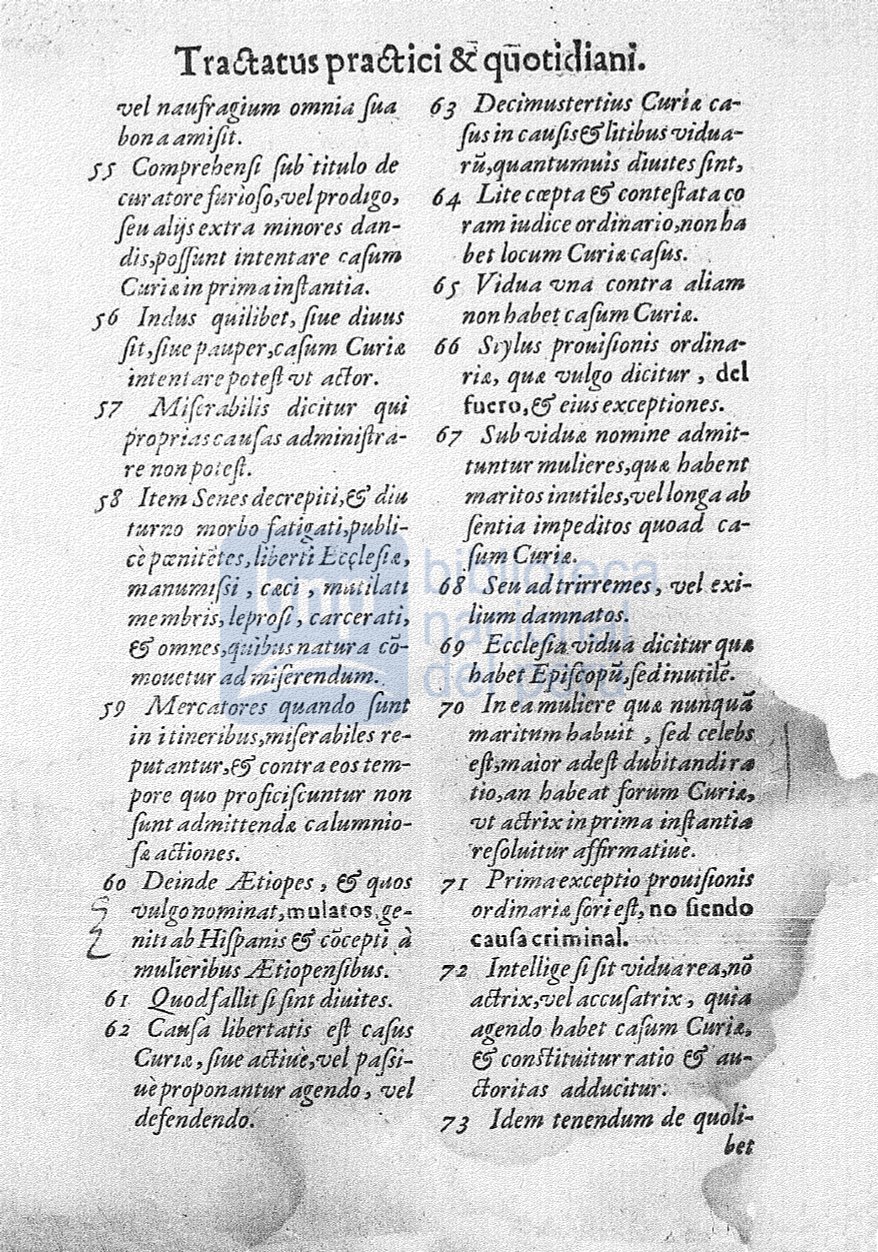 Tractatus practici & qūotidiani.
vel naufragium omnia ſua
bona amiſit.
55 Comprehenſi ſub titulo de
curatore furioſo, vel prodigo,
ſeu alijs extra minores dan-
dis, poſſunt intentare caſum
Curiæ in prima inſtantia.
56 Indus quilibet, ſiue diuus
ſit, ſiue pauper, caſum Curiæ
intentare poteſt vt actor.
57 Miſerabilis dicitur qui
proprias cauſas adminiſtra-
re non poteſt.
58 Item Senes decrepiti, & diu
turno morbo fatigati, publi-
cè pœnitẽtes, liberti Eccleſiæ,
manumiſſi, cæci, mutilati
membris, leproſi, carcerati,
& omnes, quibus natura cõ-
mouetur ad miſerendum.
59 Mercatores quando ſunt
in itineribus, miſerabiles re-
putantur, & contra eos tem-
pore quo proficiſcuntur non
ſunt admittendæ calumnio-
ſæ actiones.
60 Deinde Ætiopes, & quos
vulgo nominat, mulatos, ge-
niti ab Hiſpanis & cõcepti à
mulieribus Ætiopenſibus.
61 Quod fallit ſi ſint diuites.
62 Cauſa libertatis eſt caſus
Curiæ, ſiue actiuè, vel paſſi-
uè proponantur agendo, vel
defendendo.
63 Decimustertius Curiæ ca-
ſus in cauſis & litibus vidua-
rũ, quantumuis diuites ſint,
64 Lite cœpta & conteſtata co
ram iudice ordinario, non ha
bet locum Curiæ caſus.
65 Vidua vna contra aliam
non habet caſum Curiæ.
66 Stylus prouiſionis ordina-
riæ, quæ vulgo dicitur, del
fuero, & eius exceptiones.
67 Sub viduæ nomine admit-
tuntur mulieres, quæ habent
maritos inutiles, vel longa ab
ſentia impeditos quoad ca-
ſum Curiæ.
68 Seu ad trirremes, vel exi-
lium damnatos.
69 Eccleſia vidua dicitur quæ
habet Epiſcopũ, ſed inutilẽ.
70 In ea muliere quæ nunquã
maritum habuit, ſed celebs
eſt, maior adeſt dubitandi ra
tio, an habeat forum Curiæ,
vt actrix in prima inſtantia
reſoluitur affirmatiue.
71 Prima exceptio prouiſionis
ordinariæ fori eſt, no ſiendo
cauſa criminal.
72 Intellige ſi ſit vidua rea, nõ
actrix, vel accuſatrix, quia
agendo habet caſum Curiæ,
& conſtituitur ratio & au-
ctoritas adducitur.
73 Idem tenendum de quoli-
bet
biblioteca
nacional
del perú